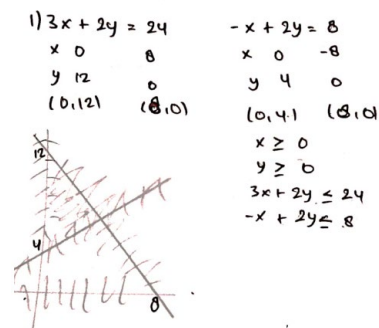 1) 3x + 2y = 24
x 0 8
y 12 0
(0,12) (8,0)
-x + 2y = 8
x 0 -8
y 4 0
(0,4) (8,0)
x ≥ 0
y ≥ 0
3x + 2y ≤ 24
-x + 2y ≤ 8
12
4
8